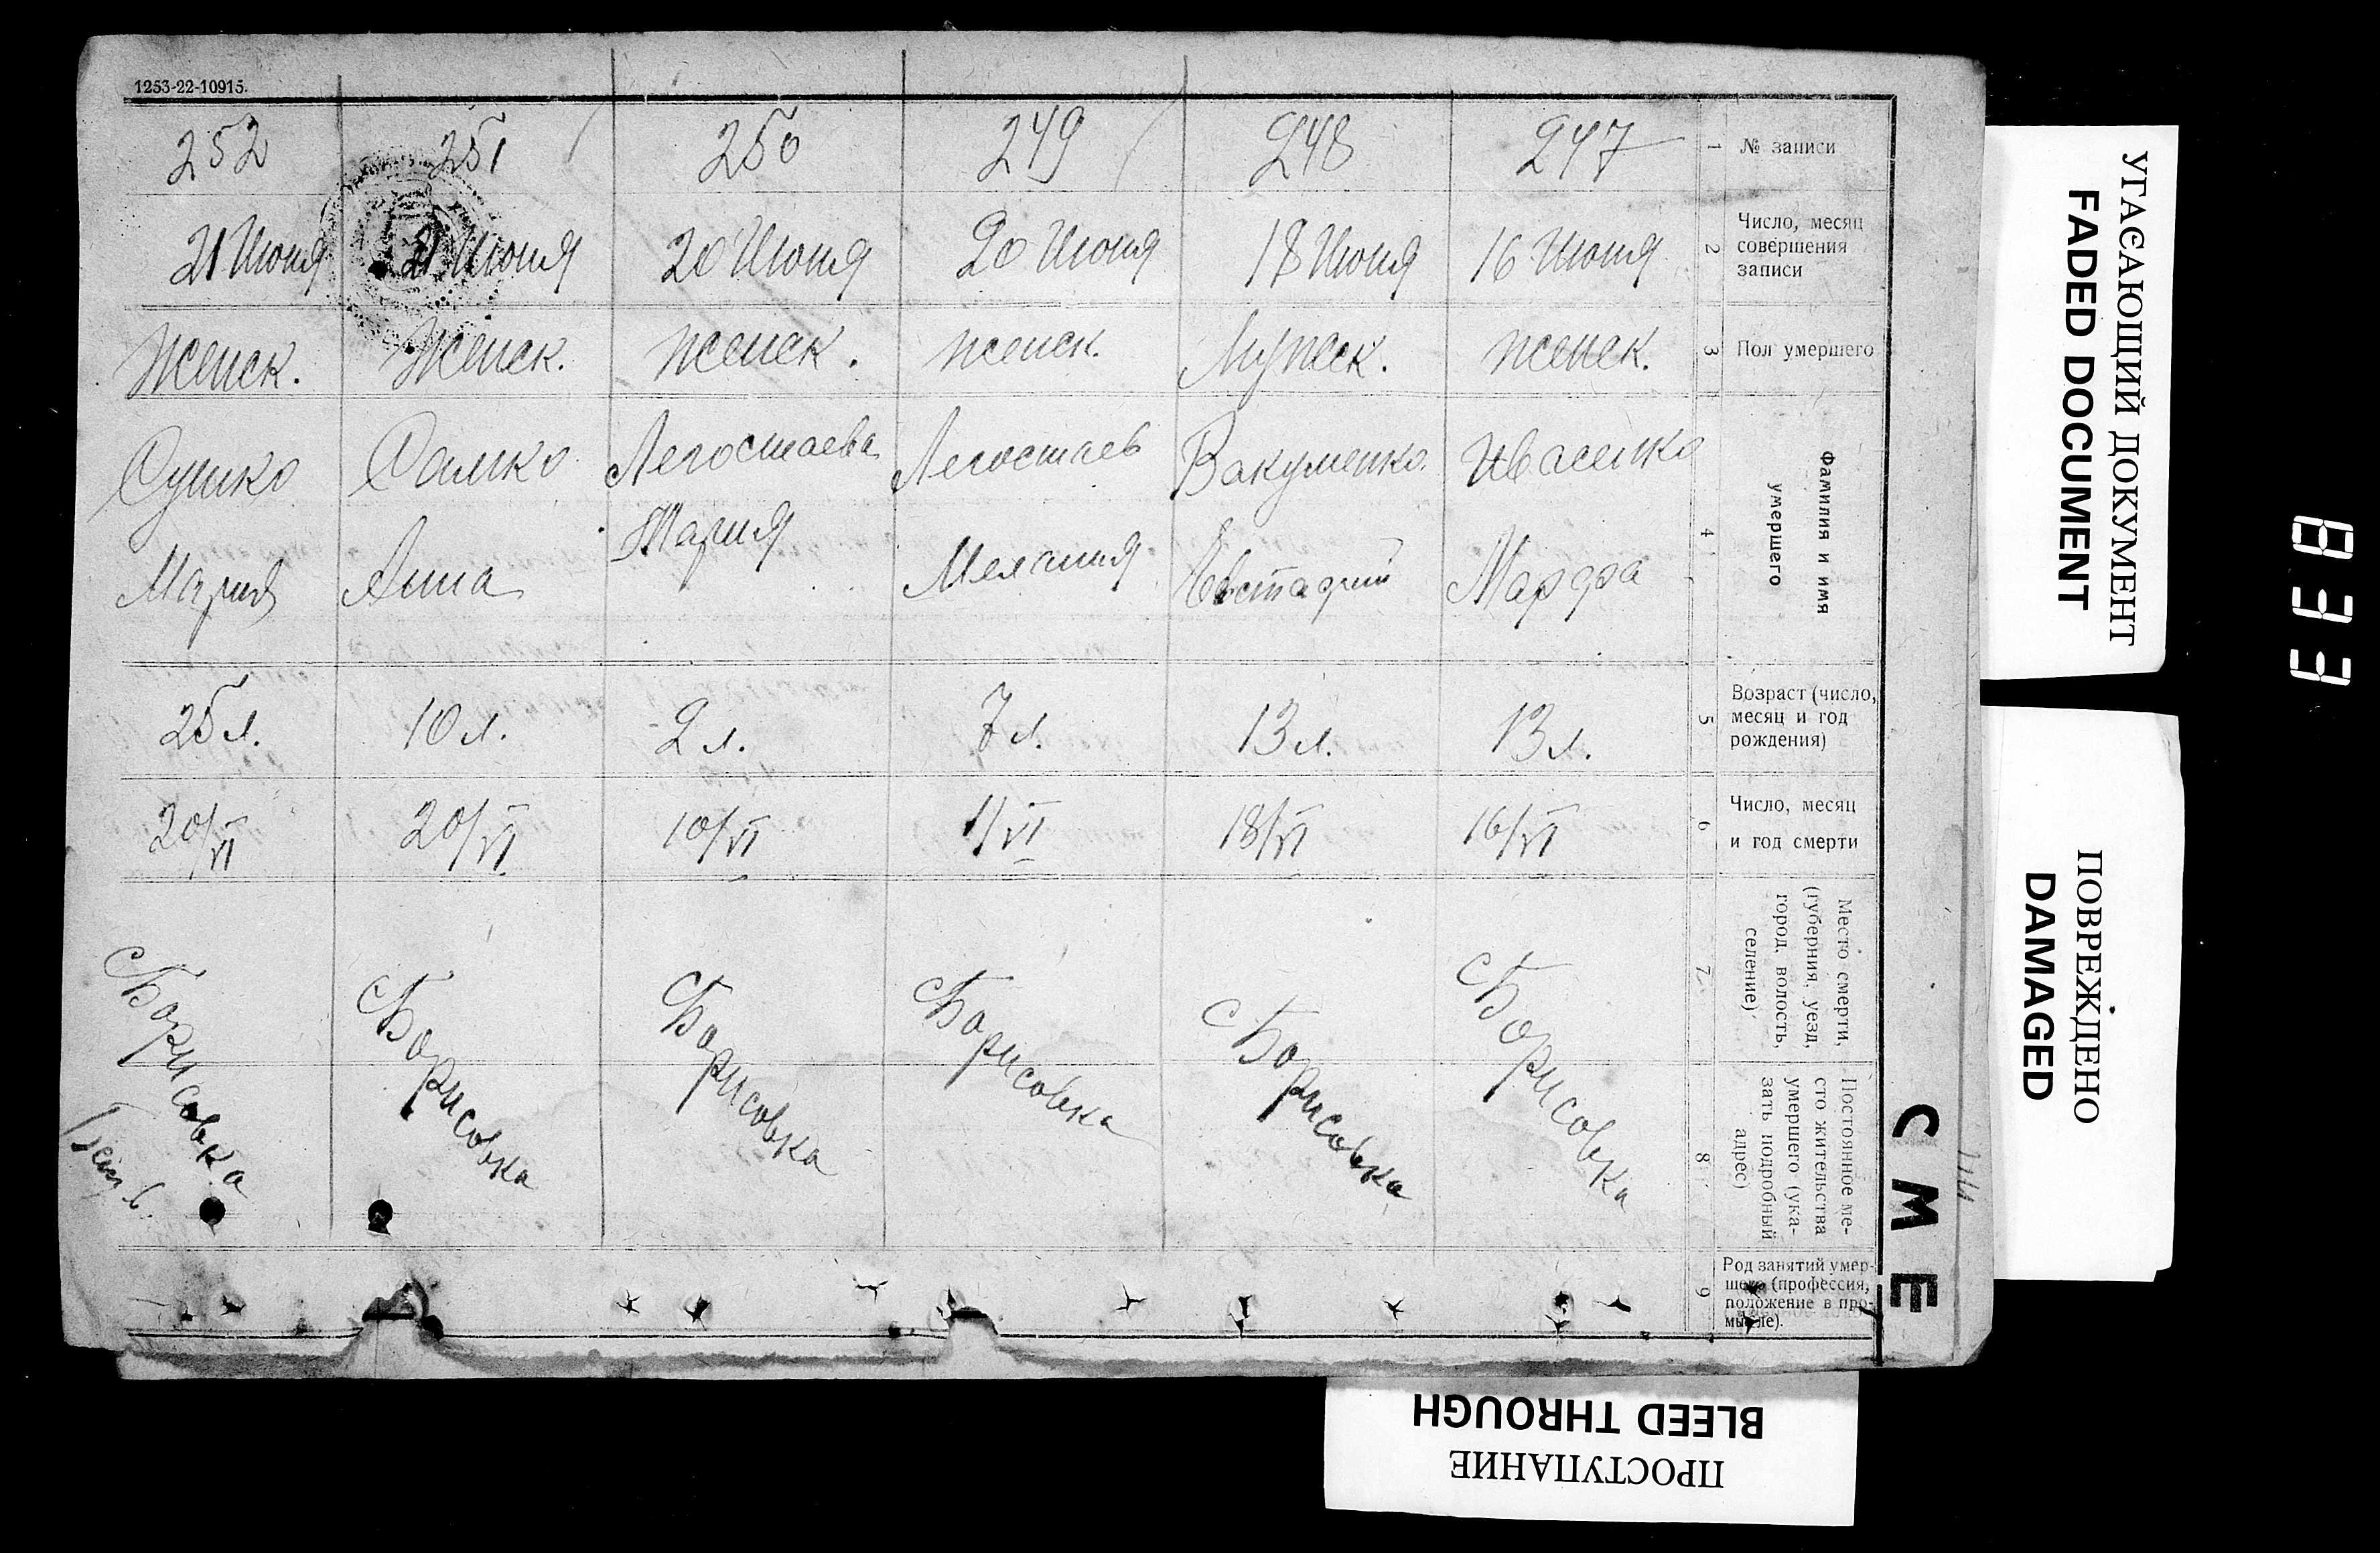 1253-22-10915.
252 251 250 249 248 247 1 № записи
21 Июня 21 Июня 20 Июня 20 Июня 18 Июня 16 Июня 2 Число, месяц
совершения
записи
Женск. Женск. женск. женск. Мужск. женск. 3 Пол умершего
Сушко Самко Легостаева Легостаев Вакуленко Ивасенко 4 Фамилия и имя
умершего
Мария Анна Мария Мелания Евстафий Марфа
25 л. 10 л. 2 л. 7 л. 13 л. 13 л. 5 Возраст (число,
месяц и год
рождения)
20/VI 20/VI 10/VI 1/VI 18/VI 16/VI 6 Число, месяц
и год смерти
с Борисовка с Борисовка с Борисовка с Борисовка с Борисовка с Борисовка 7 Место смерти,
(губерния, уезд,
город, волость,
селение)
8 Постоянное ме-
сто жительства
умершего (ука-
зать подробный
адрес)
9 Род занятий умер-
шего (профессия,
положение в про-
мысле).
СМЕ
УГАСАЮЩИЙ ДОКУМЕНТ
FADED DOCUMENT
ПОВРЕЖДЕНО
DAMAGED
ПРОСТУПАНИЕ
BLEED THROUGH